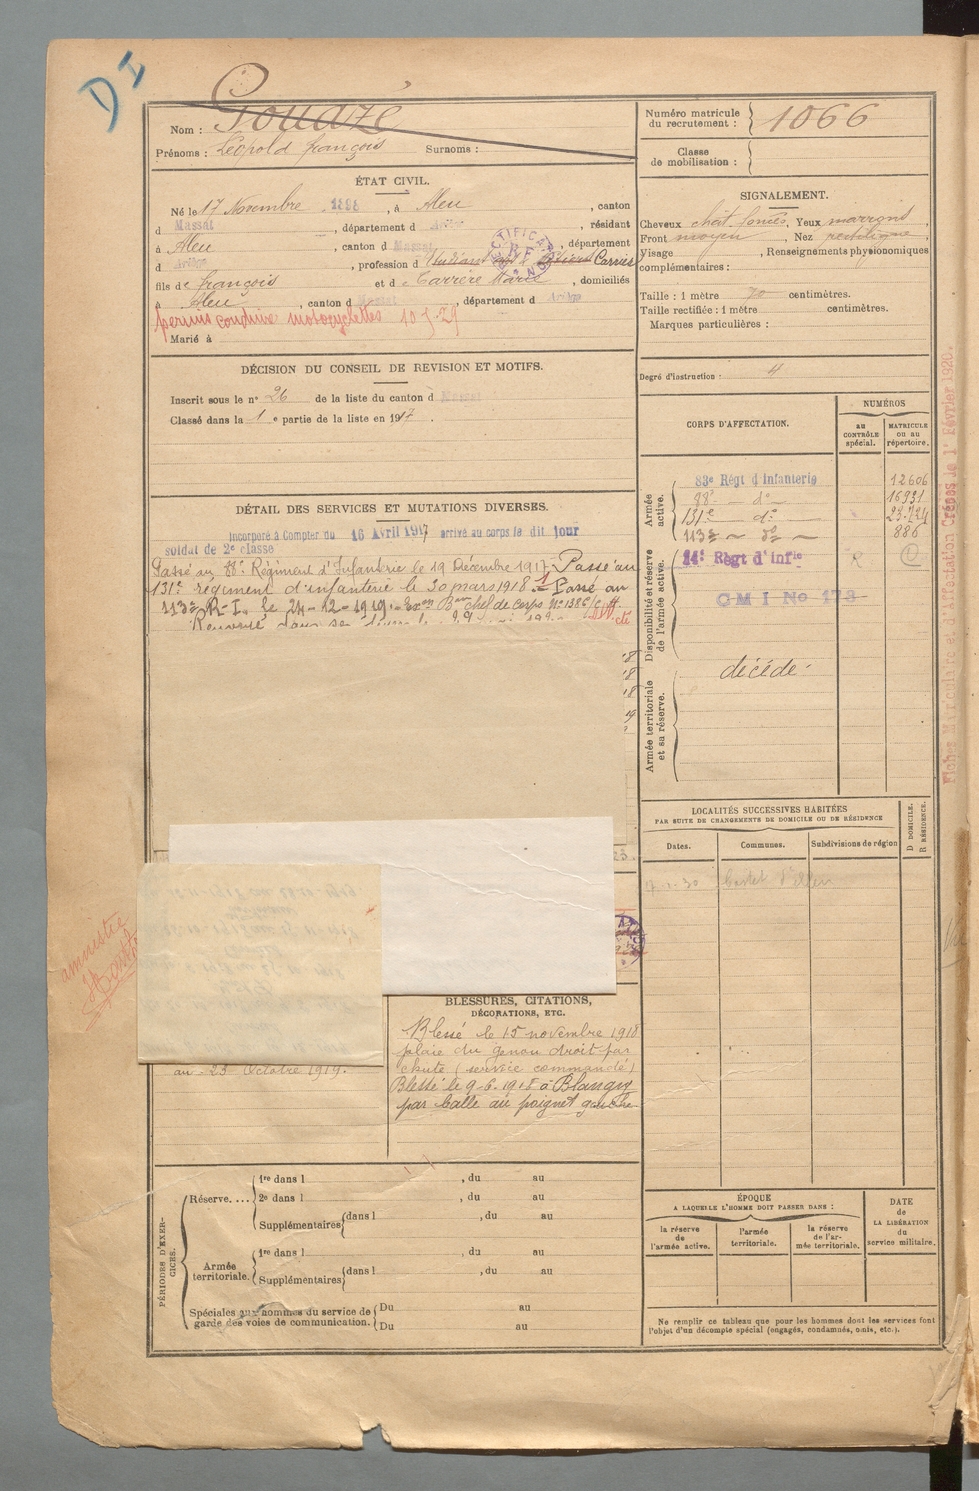 DI
Nom : Gouazé
Prénoms : Léopold françois Surnoms :
Numéro matricule du recrutement : 1066
Classe de mobilisation :
ÉTAT CIVIL.
Né le 17 Novembre 1898, à Aleu, canton
d Massat, département d Ariège, résidant
à Aleu, canton d Massat, département
d Ariège, profession d Carrier
fils de françois et d Carrère Marie, domiciliés
à Aleu, canton d Massat, département d Ariège
permis conduire motocyclettes 10 5 29
Marié à
SIGNALEMENT.
Cheveux chat. foncés, Yeux marrons
Front moyen, Nez rectiligne
Visage , Renseignements physionomiques
complémentaires :
Taille : 1 mètre 70 centimètres.
Taille rectifiée : 1 mètre centimètres.
Marques particulières :
Degré d'instruction : 4
DÉCISION DU CONSEIL DE REVISION ET MOTIFS.
Inscrit sous le n° 26 de la liste du canton d Massat
Classé dans la 1 e partie de la liste en 1917.
DÉTAIL DES SERVICES ET MUTATIONS DIVERSES.
Incorporé à Compter du 16 Avril 1917 arrivé au corps le dit jour
soldat de 2e classe
Passé au 88e Régiment d'Infanterie le 19 Décembre 1917. Passé au
131e régiment d'infanterie le 30 mars 1918. Passé au
113e R.I. le 24-12-1919. Chef de Corps
CORPS D'AFFECTATION.
NUMÉROS
au CONTRÔLE spécial.
MATRICULE ou au répertoire.
Armée active.
83e Régt d'Infanterie 12606
88e d° 16931
131e d° 23.724
113e d° 886
Disponibilité et réserve de l'armée active.
14e Régt d'Infie R
CMI No 173
Armée territoriale et sa réserve.
décédé
Fiches Matricule et d'Affectation Créées le 1er Février 1920.
LOCALITÉS SUCCESSIVES HABITÉES
PAR SUITE DE CHANGEMENTS DE DOMICILE OU DE RÉSIDENCE
D DOMICILE. R RÉSIDENCE.
Dates. Communes. Subdivisions de région
30 Castet d'Aleu
amnistie
BLESSURES, CITATIONS,
DÉCORATIONS, ETC.
Blessé le 15 novembre 1918
plaie du genou droit par
chute (service commandé)
Blessé le 9-6-1918 à Blangy
par balle au poignet gauche
au 23 Octobre 1919.
PÉRIODES D'EXERCICES.
Réserve.... 1re dans l , du au
2e dans l , du au
Supplémentaires dans l , du au
Armée territoriale. 1re dans l , du au
Supplémentaires dans l , du au
Spéciales aux hommes du service de garde des voies de communication. Du au
Du au
ÉPOQUE
A LAQUELLE L'HOMME DOIT PASSER DANS :
la réserve de l'armée active.
l'armée territoriale.
la réserve de l'armée territoriale.
DATE de LA LIBÉRATION du service militaire.
Ne remplir ce tableau que pour les hommes dont les services font
l'objet d'un décompte spécial (engagés, condamnés, omis, etc.).